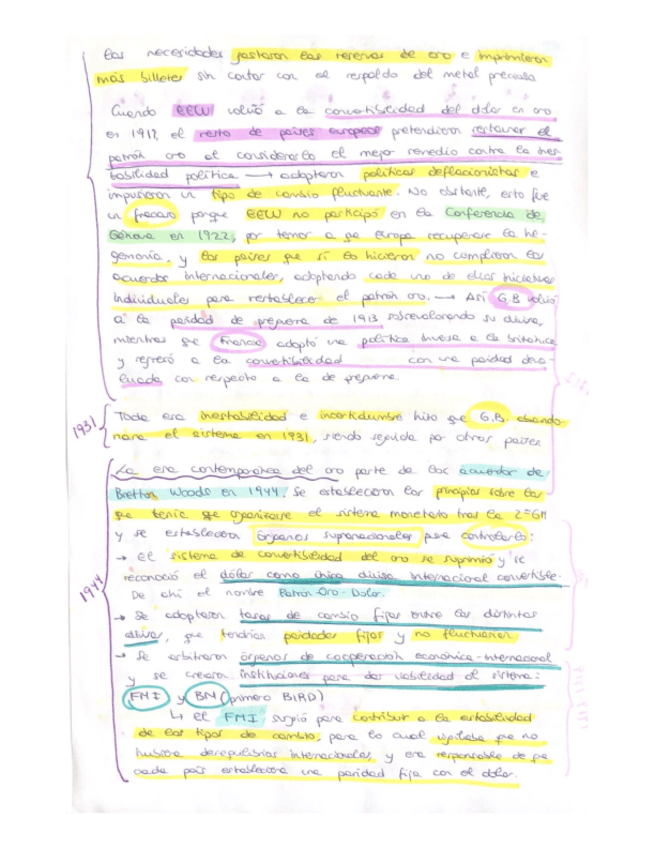 las necesidades gastaron las reservas de oro e imprimieron
más billetes sin contar con el respaldo del metal precioso
Cuando EEUU volvió a la convertibilidad del dólar en oro
en 1917, el resto de países europeos pretendieron restaurar el
patrón oro al considerarlo el mejor remedio contra la ines-
tabilidad política → adoptaron políticas deflacionistas e
impusieron un tipo de cambio fluctuante. No obstante, esto fue
un fracaso porque EEUU no participó en la Conferencia de
Génova en 1922, por temor a qe Europa recuperase la he-
gemonía, y los países que sí lo hicieron no cumplieron los
acuerdos internacionales, adoptando cada uno de ellos iniciativas
individuales para restablecer el patrón oro. → Así G.B volvió
a la paridad de preguerra de 1913 sobrevalorando su divisa,
mientras que Francia adoptó una política inversa a la británica
y regresó a la convertibilidad con una paridad deva-
luada con respecto a la de preguerra.
1931
Toda esa inestabilidad e incertidumbre hizo que G.B. abando-
nara el sistema en 1931, siendo seguida por otros países
1944
La era contemporánea del oro parte de los acuerdos de
Bretton Woods en 1944. Se establecieron los principios sobre los
que tenía que organizarse el sistema monetario tras la 2ªGM
y se establecieron órganos supranacionales para controlarlo:
→ el sistema de convertibilidad del oro se suprimió y se
reconoció el dólar como única divisa internacional convertible.
De ahí el nombre Patrón-Oro-Dólar.
→ Se adoptaron tasas de cambio fijas entre las distintas
divisas, que tendrían paridades fijas y no fluctuaran
→ Se arbitraron órganos de cooperación económica-internacional
y se crearon instituciones para dar viabilidad al sistema:
FMI y BM (primero BIRD)
↳ el FMI surgió para contribuir a la estabilidad
de los tipos de cambio, para lo cual vigilaba que no
hubiera desequilibrios internacionales, y era responsable de qe
cada país estableciera una paridad fija con el dólar.